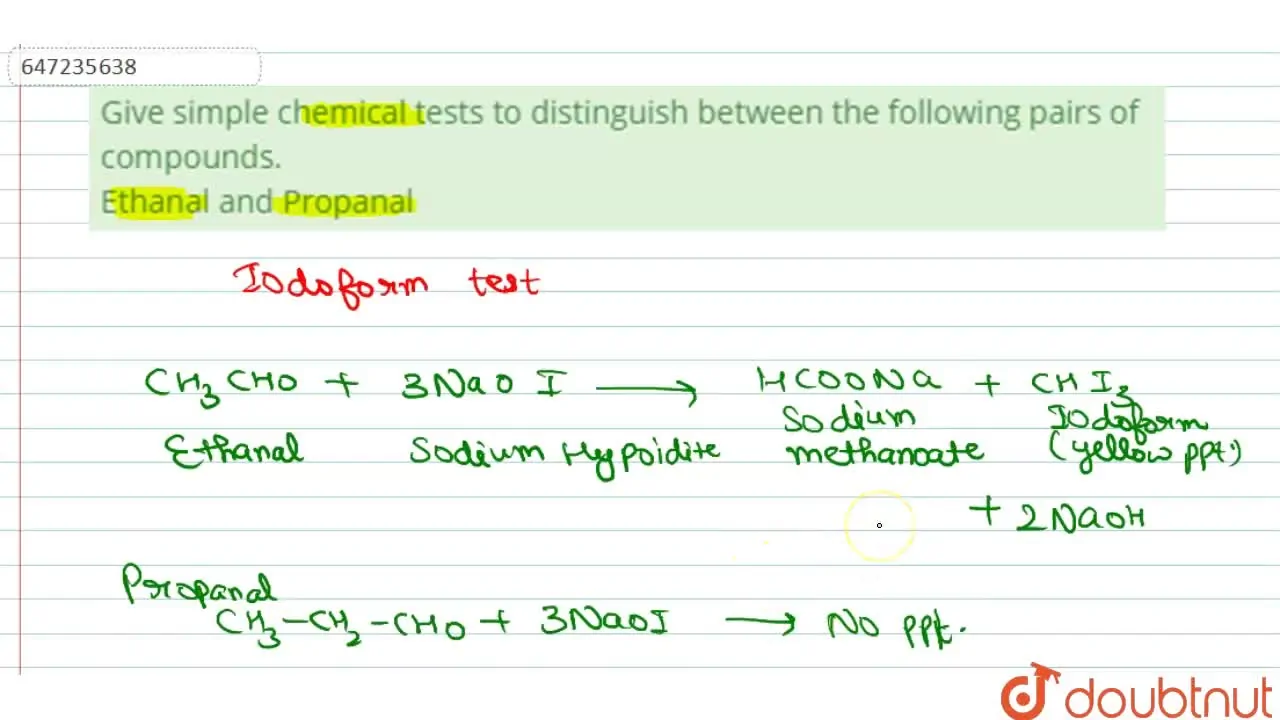 647235638
Give simple chemical tests to distinguish between the following pairs of
compounds.
Ethanal and Propanal
Iodoform test
CH3 CHO + 3NaOI ⟶ HCOONa + CHI3
Ethanal Sodium Hypoidite Sodium methanoate Iodoform (yellow ppt.)
+ 2NaOH
Propanal
CH3-CH2-CHO + 3NaOI ⟶ No ppt.
doubtnut